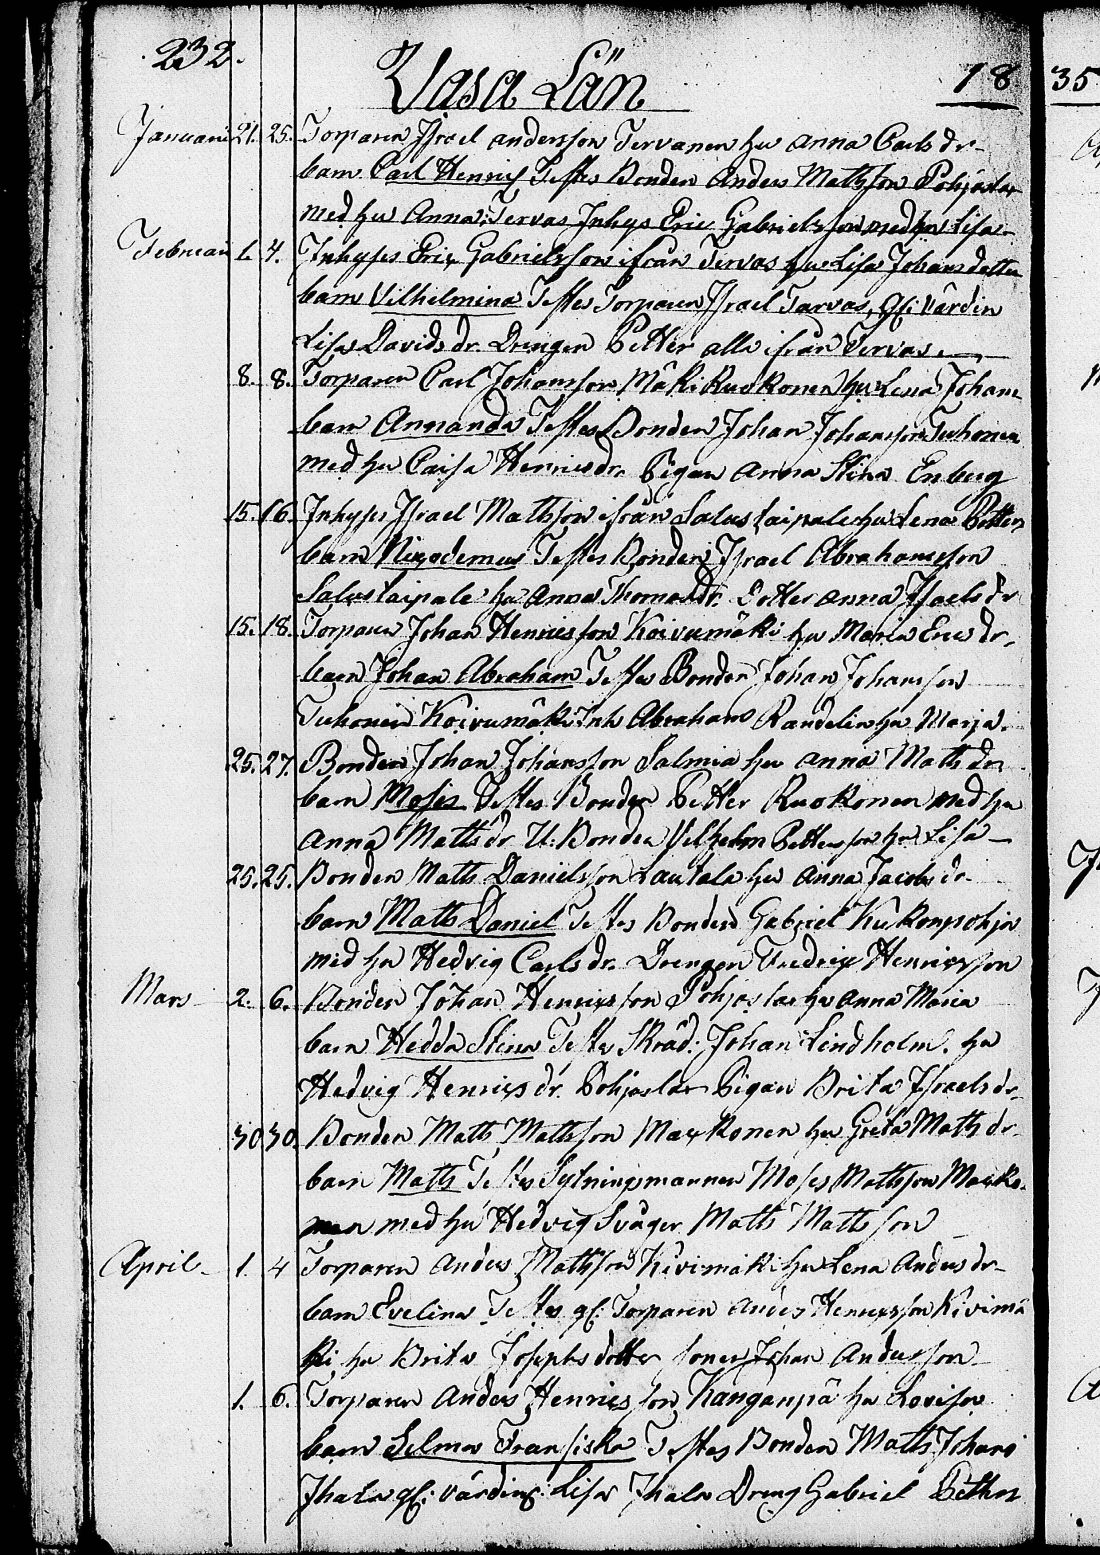 232.
Vasa Län 18 35
Januari 21. 25. Torparen Israel andersson Tervanen hu anna Carls dr
barn Carl Henric Testes Bonden Anders Mathsson Pohjoslar
med hu Anna Tervas Inhys Eric Gabrielsson med hu Lisa
Februari 1. 4. Inhyses Eric Gabrielsson ifrån Tervas hu Lisa Johansdotter
barn Vilhelmina Testes Torparen Israel Tarvas, gl: Värdin
Lisa Davids dr Drengen Petter alla ifrån Tervas.
8. 8. Torparen Carl Johansson Mäki Ruokonen hu Lena Johans
barn Amanda Testes Bonden Johan Johansson Tuhonen
med hu Caisa Henrics dr. Pigan Anna Stina Enberg
15. 16. Inhyses Israel Mathsson ifrån Saluslaipale hu Lena Petters
barn Nicodemus Testes Bonden Israel Abrahamsson
Saluslaipale hu Anna Thomas dr. Dotter anna Israels dr
15. 18. Torparen Johan Henricsson Koivumäki hu Maria Erics dr.
barn Johan Abraham Testes Bonden Johan Johansson
Tuhonen Koivumäki Inh Abraham Randelin hu Marja.
25. 27. Bonden Johan Johansson Salmia hu anna Maths dr
barn Moses Testes Bonden Petter Ruokonen med hu
Anna Maths dr U: Bonden Vilhelm Pettersson hu Lisa
25. 25. Bonden Maths Danielsson Lautala hu Anna Jacobs dr
barn Maths Daniel Testes Bonden Gabriel Kukonpohja
med hu Hedvig Carls dr. Drengen Fredric Henricsson
Mars 2. 6. Bonden Johan Henricsson Pohjoslar hu Anna Maria
barn Hedda Stina Testes Skräd: Johan Lindholm. hu
Hedvig Henrics dr. Pohjoslar Pigan Brita Israels dr.
30 30. Bonden Maths Mathsson Mackonen hu Greta Maths dr
barn Maths Testes Sytningsmannen Moses Mathsson Macko-
nen med hu Hedvig Svåger Maths Mathsson
April 1. 4 Torparen Anders Mathsson Kivimäki hu Lena Anders dr
barn Evelina Testes gl: Torparen Anders Henricsson Kivimä
ki hu Brita Josephs dotter sonen Johan Andersson
1. 6. Torparen Anders Henricsson Kanganpä hu Lovisa
barn Selma Fransiska Testes Bonden Maths Johans
Ihala gl: Värdin: Lisa Ihala Dreng Gabriel Petters